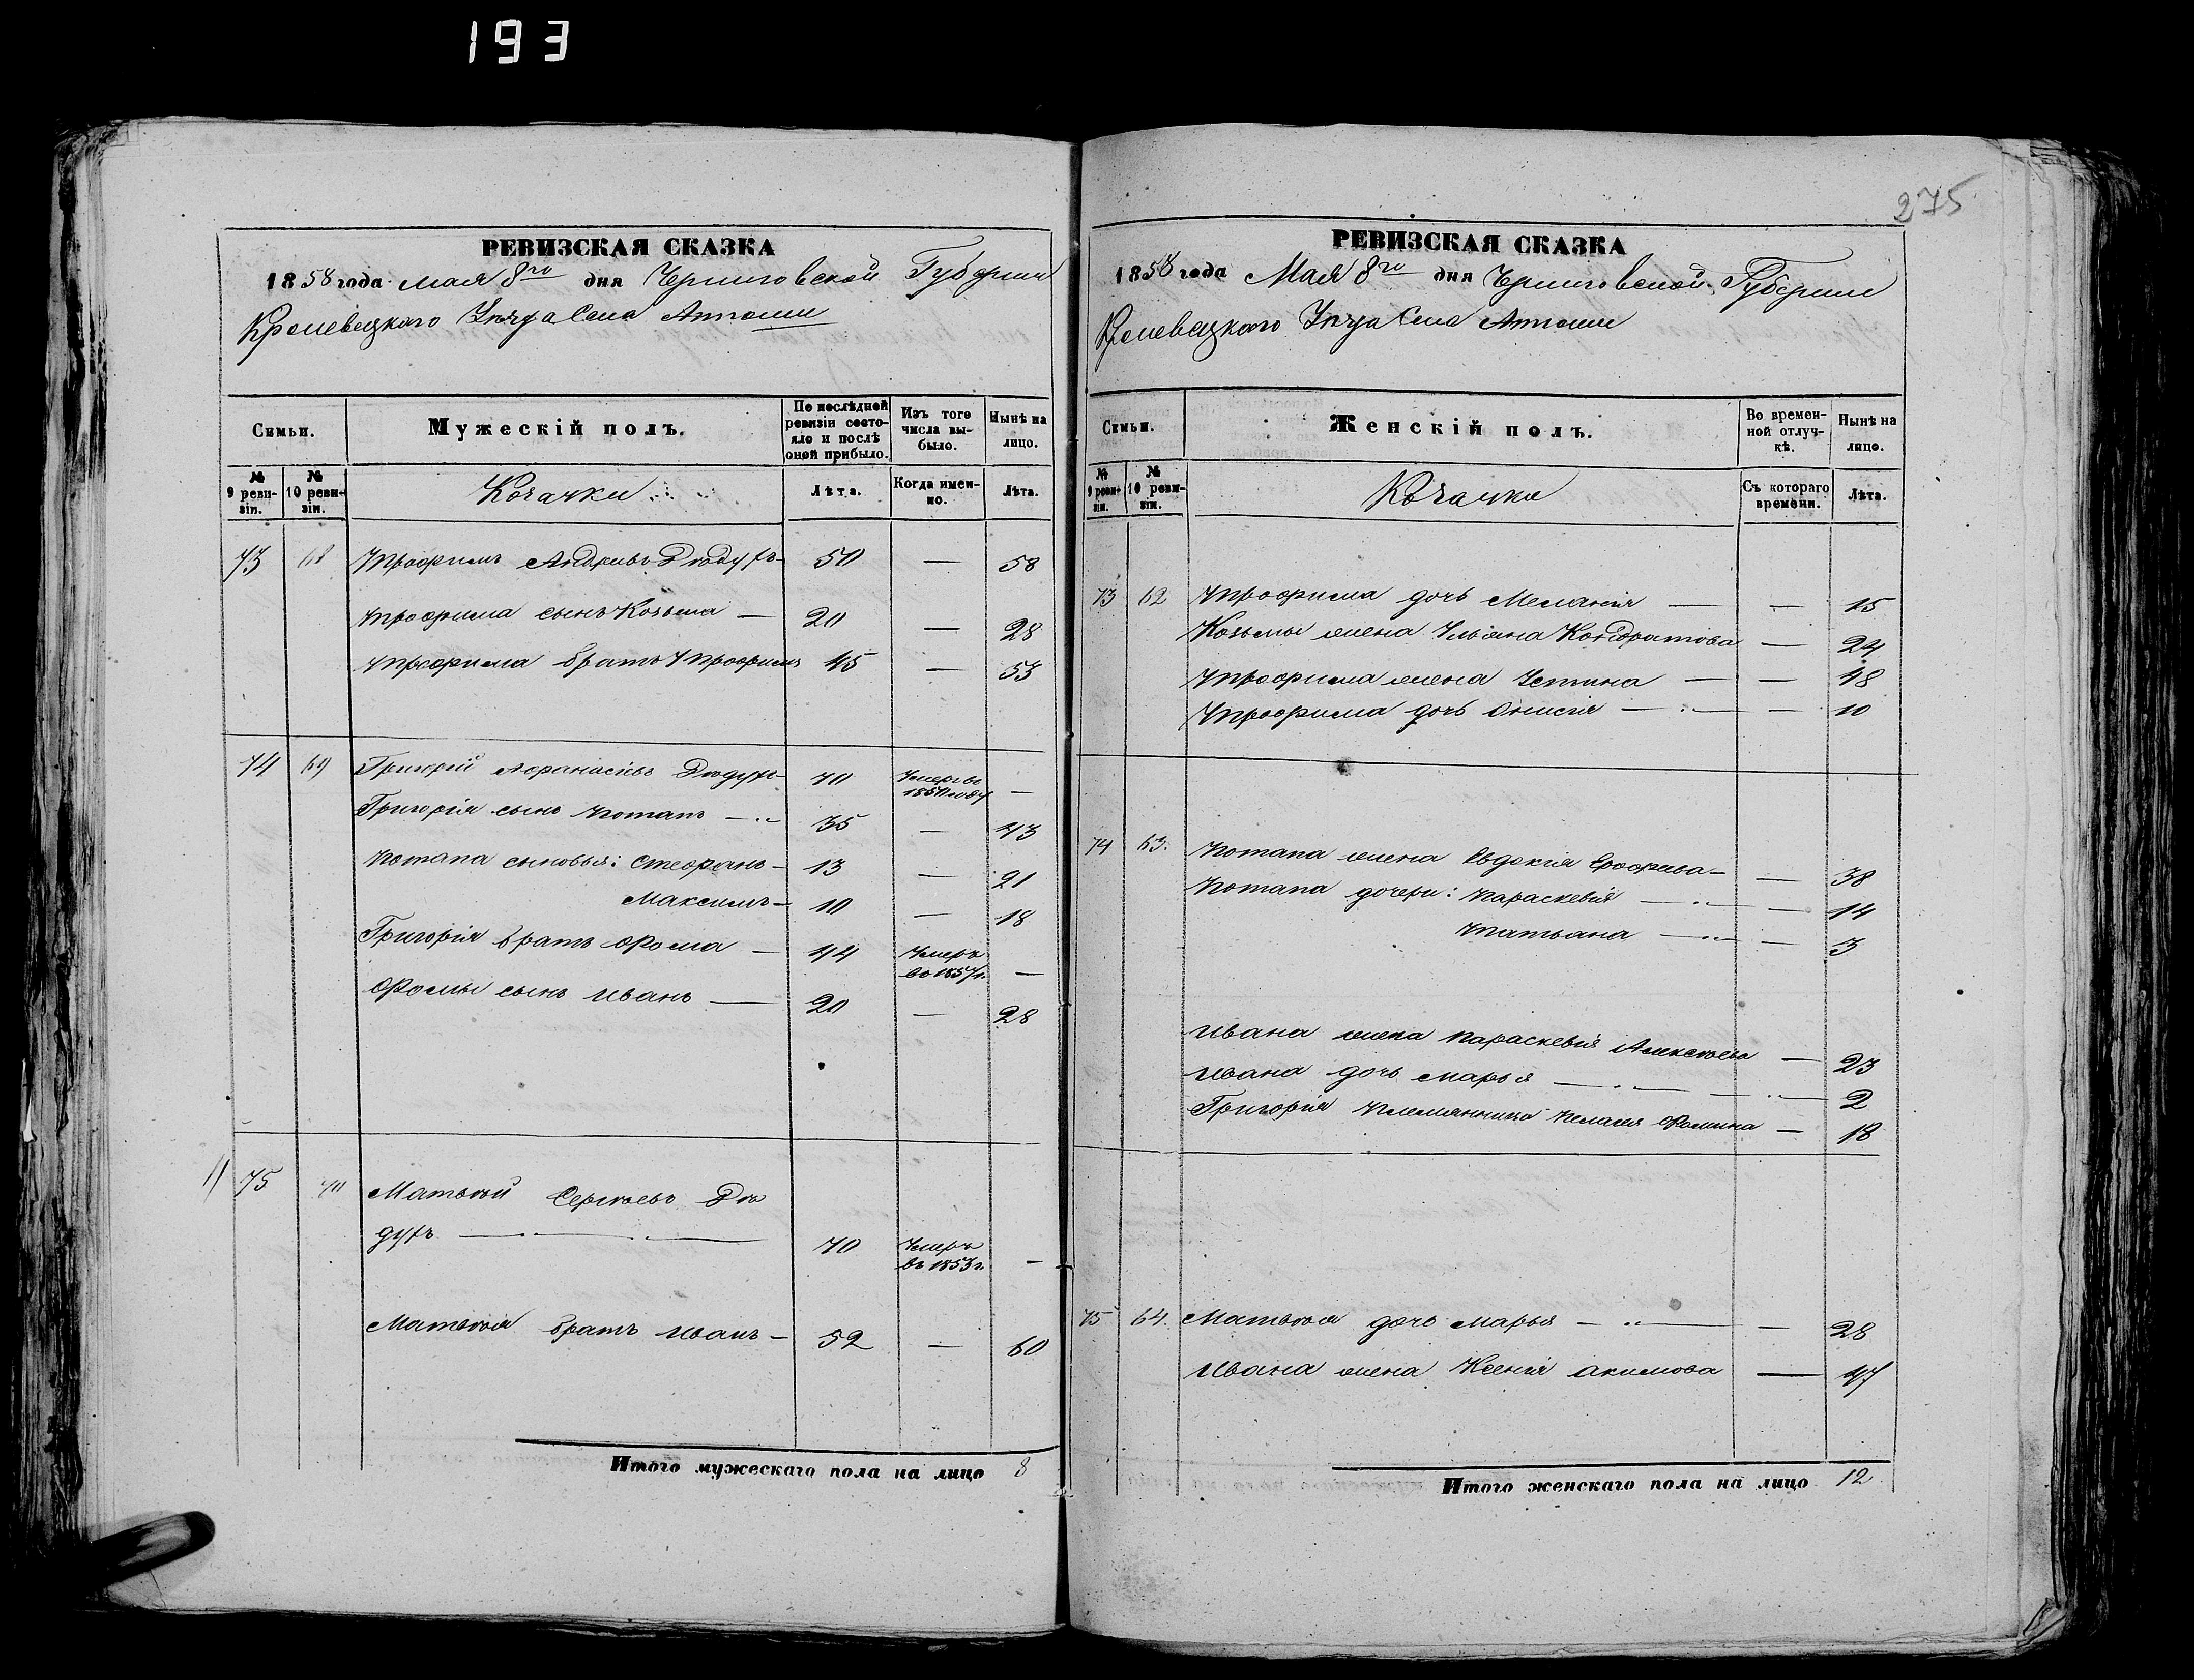 193
275
РЕВИЗСКАЯ СКАЗКА
1858 года мая 8го дня Черниговской Губернии
Кролевецкаго Уѣзда Села
Семьи.
Мужескій полъ.
По послѣдней ревизіи состояло и послѣ оной прибыло.
Изъ того числа выбыло.
Нынѣ на лицо.
№ 9 ревизіи.
№ 10 ревизіи.
Козачки
Лѣта.
Когда именно.
Лѣта.
73 Трофимъ Андреевъ 50 — 58
Трофима сынъ Козьма — 20 — 28
Трофима братъ Трофимъ 45 — 53
74 69 Григорій Афанасіевъ 70 Умеръ въ 1850 году —
Григорія сынъ Потапъ — 35 — 43
Потапа сыновья: Стефанъ — 13 — 21
Максимъ — 10 — 18
Григорія братъ Фома — 44 Умеръ въ 1857 г. —
Фомы сынъ Иванъ — 20 — 28
75 70 Матвѣй Сергѣевъ Дю
дуръ — 70 Умеръ въ 1853 г. —
Матвѣя братъ Иванъ — 52 — 60
Итого мужескаго пола на лицо 8
РЕВИЗСКАЯ СКАЗКА
1858 года Мая 8го дня Черниговской Губернии
Кролевецкаго Уѣзда Села
Семьи.
Женскій полъ.
Во временной отлучкѣ.
Нынѣ на лицо.
№ 9 ревизіи.
№ 10 ревизіи.
Козачки
Съ котораго времени.
Лѣта.
73 62 Трофима дочь Меланія — — 15
Козьмы жена Ульяна Кондратова — 24
Трофима жена Устина — — 48
Трофима дочь Онисія — — 10
74 63. Потапа жена Евдокія — 38
Потапа дочери: Параскевія — — 14
Татьана — — 3
Ивана жена Параскевія Алексѣева — 23
Ивана дочь Марья — — 2
Григорія племянница Пелагея Фомина — 18
75 64. Матвѣя дочь Марья — — 28
Ивана жена Ксенія Акимова — 47
Итого женскаго пола на лицо 12